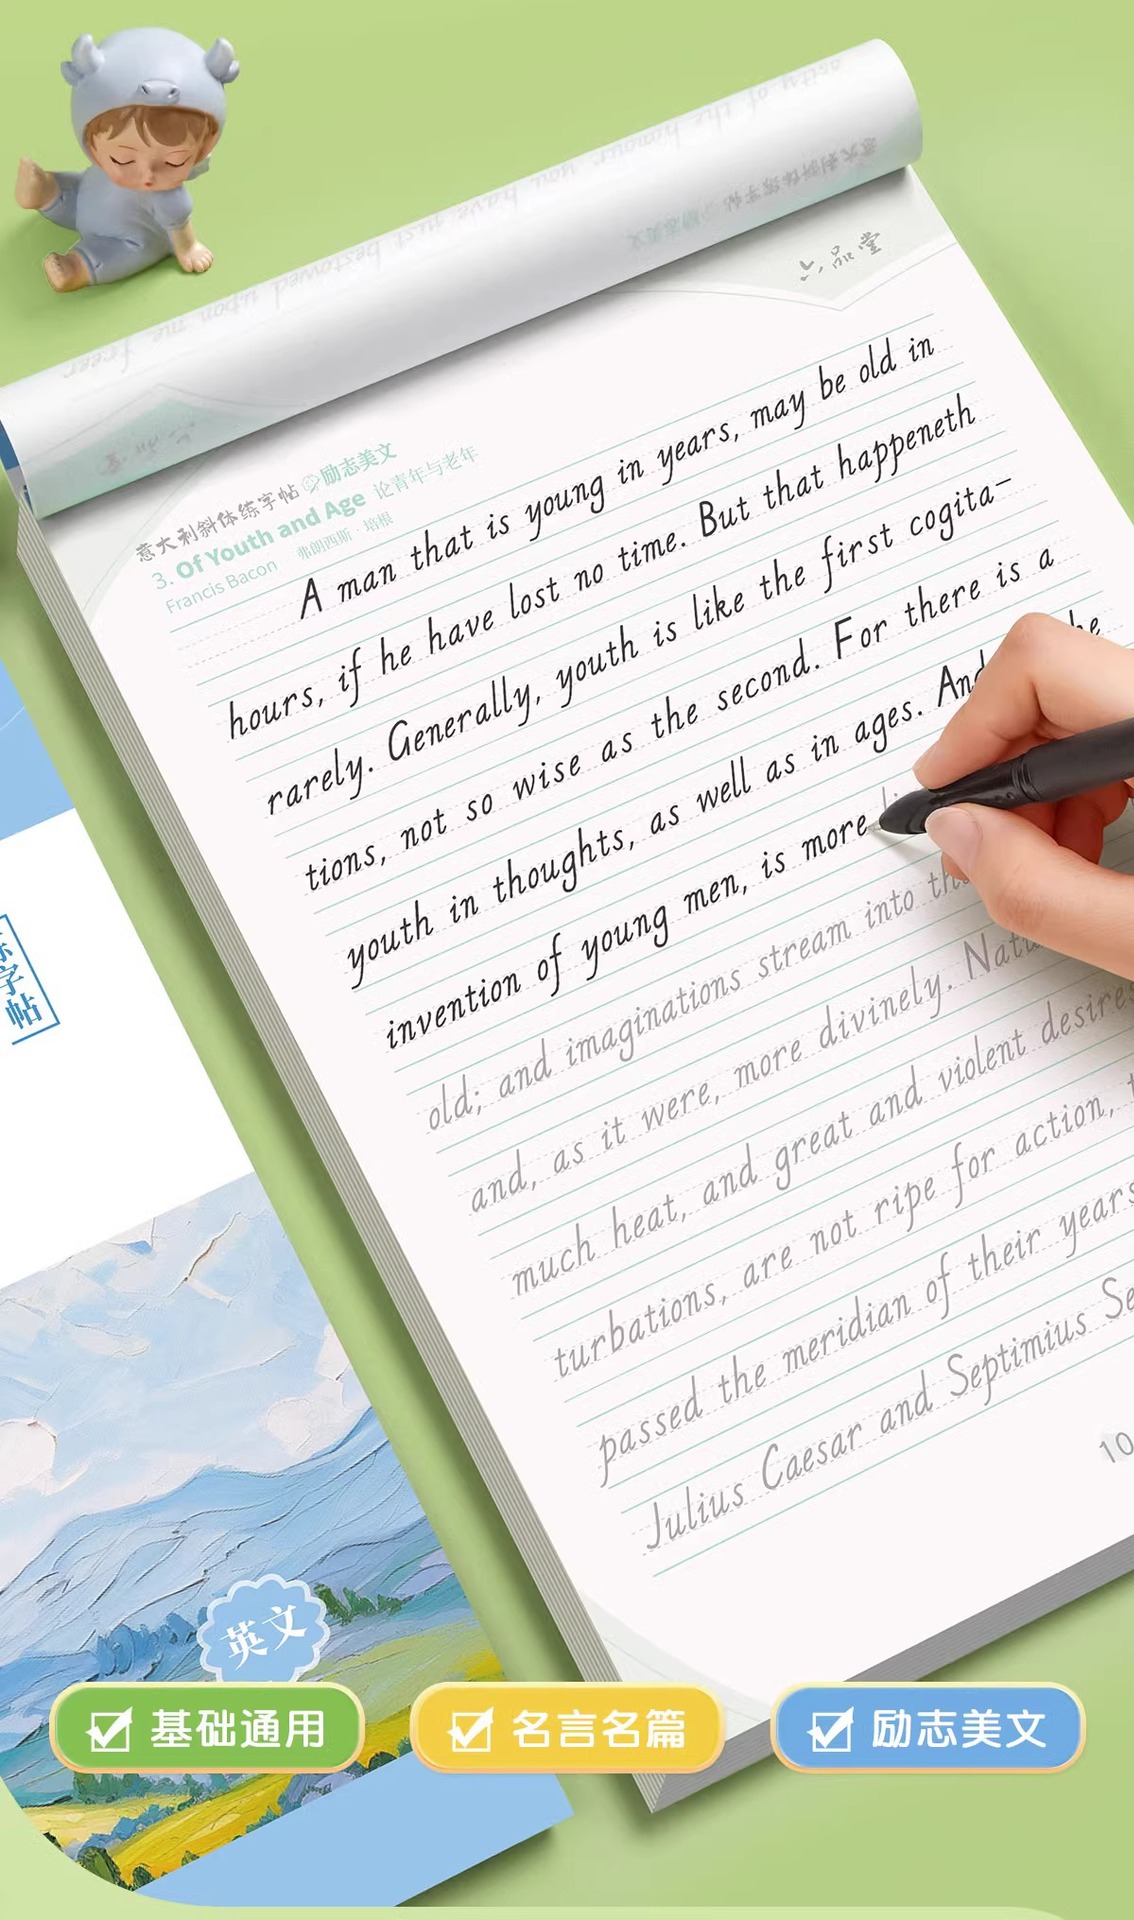 六品堂
意大利斜体练字帖 励志美文
3. Of Youth and Age 论青年与老年
Francis Bacon 弗朗西斯·培根
A man that is young in years, may be old in
hours, if he have lost no time. But that happeneth
rarely. Generally, youth is like the first cogita-
tions, not so wise as the second. For there is a
youth in thoughts, as well as in ages. And he
invention of young men, is more
old; and imaginations stream into
and, as it were, more divinely.
much heat, and great and violent desires
turbations, are not ripe for action,
passed the meridian of their years
Julius Caesar and Septimius
10
字帖
英文
基础通用
名言名篇
励志美文